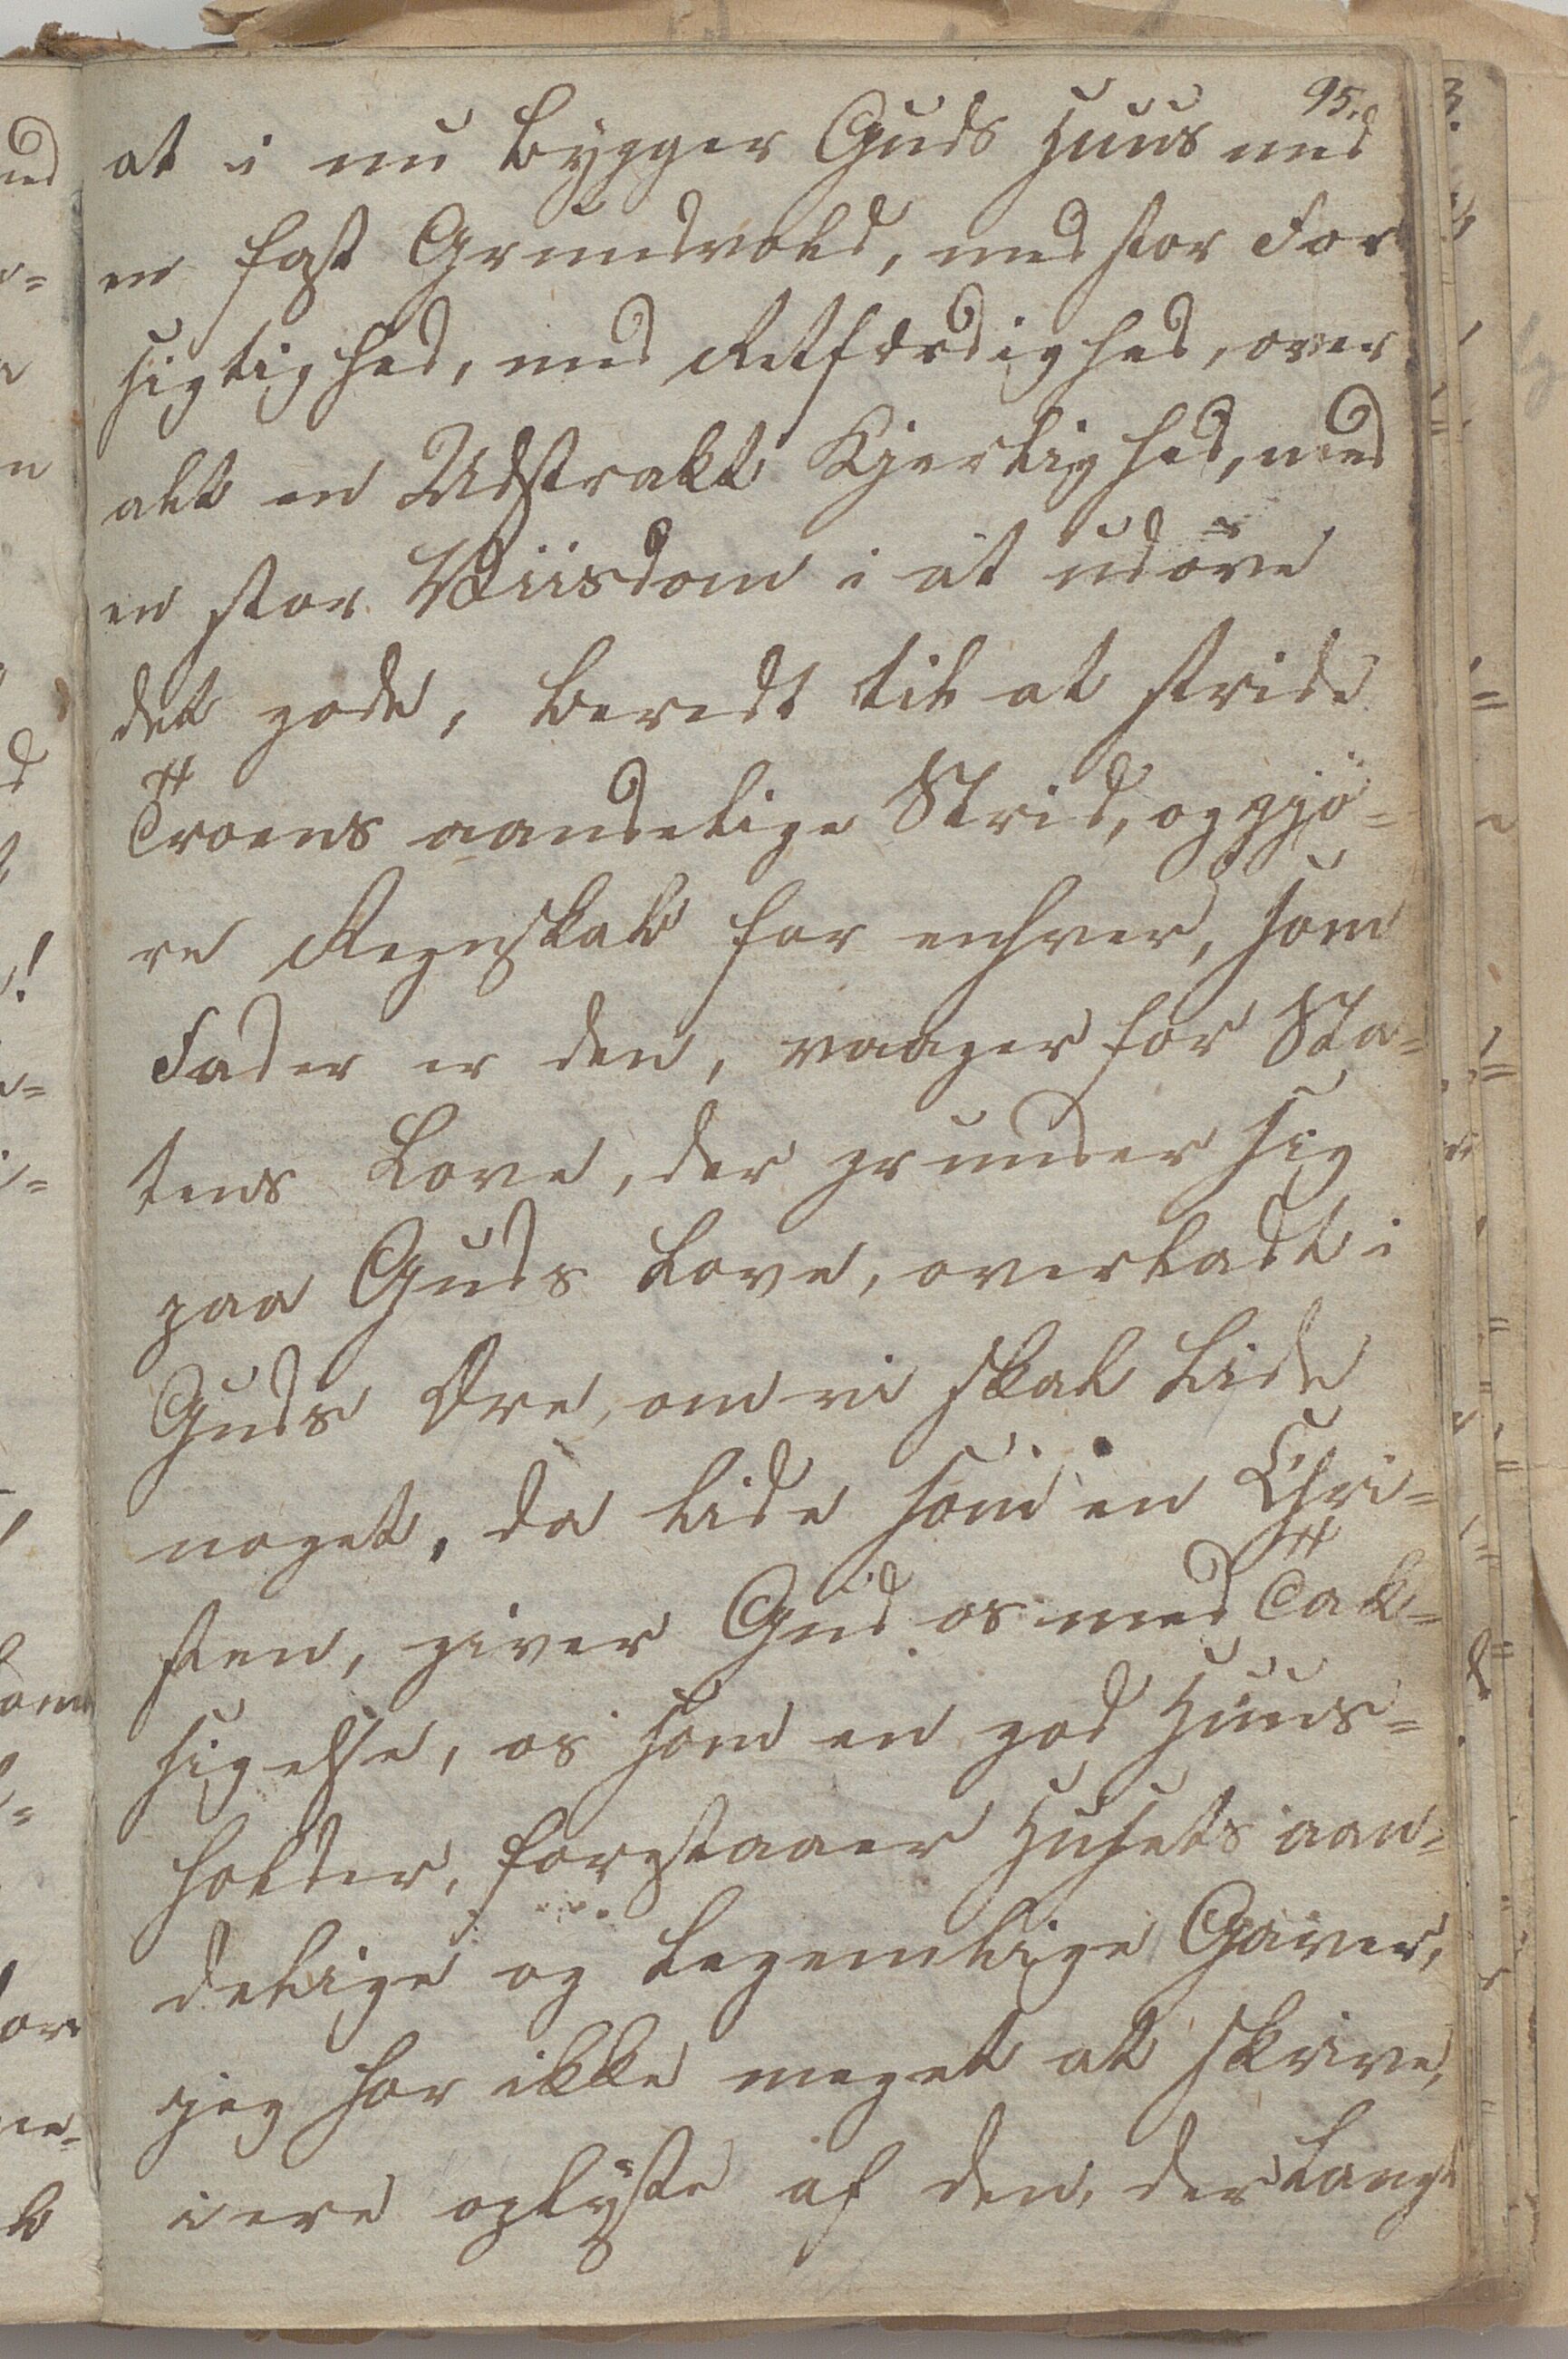 95.
at i nu bygger Guds Huus med
en fast Grundvold, med stor For
sigtighed, med Retfærdighed, over
alt en Udstrakt Kjerlighed, med
en stor Viisdom i at udöve
det gode, beredt til at stride
Troens aandelige Strid, og gjö=
re Regnskab for enhver, som
Fader er den, vaager for Sta=
tens Love, der grunder sig
paa Guds Love, overladt i
Guds Øre, om vi skal lide
noget, da lide som en Chri=
sten, giver Gud os med Tak=
sigelse, os som en god Huus=
holder, forestaaer Husets aan=
delige og legemlige Gaver,
jeg har ikke meget at skrive,
i ere oplyste af den, der lang